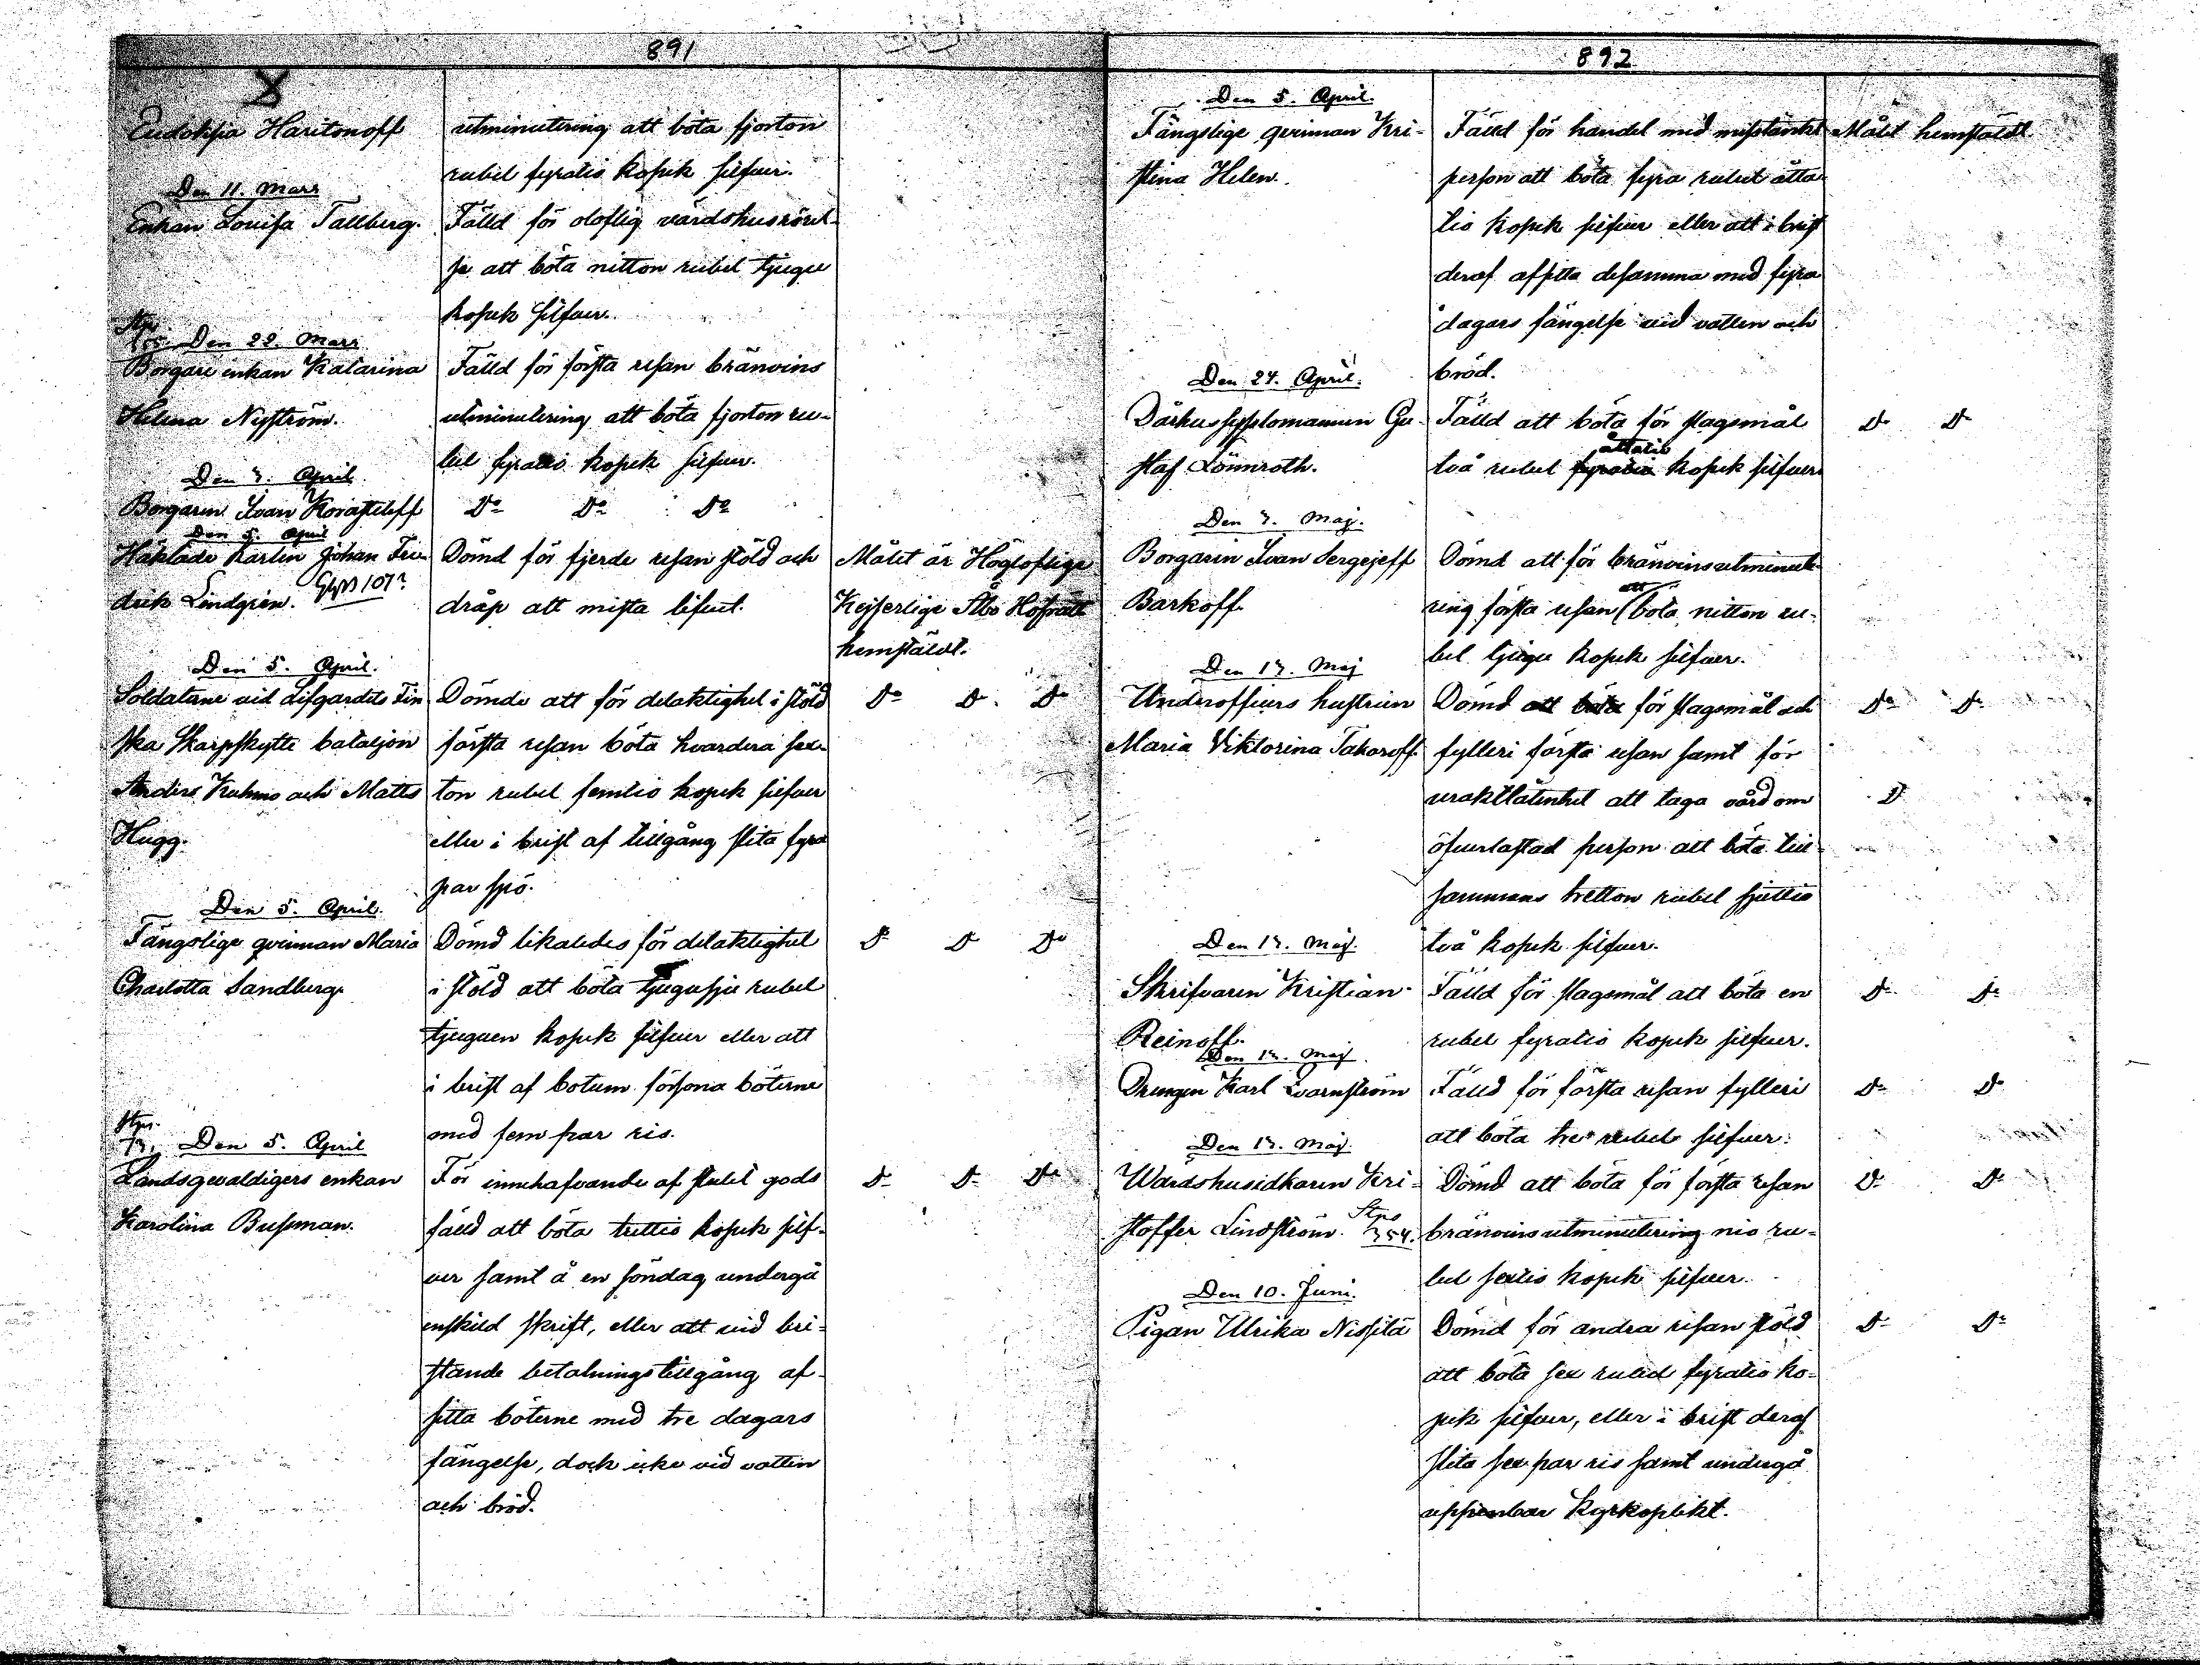 891
Eudoksia Haritonoff
utminutering att böta fjorton
rubel fyratio kopek silfver.
Den 11. Mars
Enkan Louisa Tallberg.
Fälld för oloflig värdshusrörel-
se att böta nitton rubel tjugu
kopek silfver.
Den 22. Mars
Borgare enkan Katarina
Helena Nyström.
Fälld för första resan bränvins
utminutering att böta fjorton ru-
bel fyratio kopek silfver.
Den 3. April
Borgaren Ivan
Do Do Do
Den 5. April
Häktade Karlen Johan Fre-
drik Lindgren.
Dömd för fjerde resan stöld och
dråp att mista lifvet.
Målet är Högloflige
Kejserlige Åbo Hofrätt
hemstäldt.
Den 5. April.
Soldatene vid Lifgardets Fin
ska Skarpskytte bataljon
Anders Kuhmo och Matts
Hugg.
Dömde att för delaktighet i stöld
första resan böta hvardera sex-
ton rubel femtio kopek silfver
eller i brist af tillgång slita fyra
par spö.
Do Do Do
Den 5. April.
Fängslige qvinnan Maria
Charlotta Sandberg.
Dömd likaledes för delaktighet
i stöld att böta tjugusju rubel
tjuguen kopek silfver eller att
i brist af botum försona böterne
med fem par ris.
Do Do Do
Den 5. April
Landsgevaldigers enkan
Karolina Busman.
För innehafvande af stulet gods
fälld att böta trettio kopek silf-
ver samt å en söndag undergå
enskild skrift, eller att vid bri-
stande betalningstillgång af-
sitta böterne med tre dagars
fängelse, dock icke vid vatten
och bröd.
Do Do Do
892
Den 5. April.
Fängslige qvinnan Kri-
stina Helen.
Fälld för handel med misstänkt
person att böta fyra rubel åtta-
tio kopek silfver eller att i brist
deraf afsitta desamma med fyra
dagars fängelse vid vatten och
bröd.
Målet hemstäldt.
Den 24. April.
Dårhussysslomannen Gu-
staf Lönnroth.
Fälld att böta för slagsmål
åttatio
två rubel fyratio kopek silfver
Do Do
Den 3. Maj.
Borgaren Ivan Sergejeff
Barkoff.
Dömd att för bränvinsutminute-
att
ring första resan böta nitton ru-
bel tjugu kopek silfver.
Den 13. Maj
Underofficers hustrun
Maria Viktorina Takaroff.
Dömd att böta för slagsmål och
fylleri första resan samt för
uraktlåtenhet att taga vård om
öfverlastad person att böta till-
sammans tretton rubel sjuttio
två kopek silfver.
Do Do
Do
Den 13. Maj.
Skrifvaren Kristian
Reinoff.
Fälld för slagsmål att böta en
rubel fyratio kopek silfver.
Do Do
Den 13. Maj.
Drengen Karl Qvarnström
Fälld för första resan fylleri
att böta tre rubel silfver.
Do Do
Den 13. Maj.
Wärdshusidkaren Kri-
stoffer Lindström.
Dömd att böta för första resan
bränvinsutminutering nio ru-
bel sextio kopek silfver.
Do Do
Den 10. Juni.
Pigan Ulrika Nissilä
Dömd för andra resan stöld
att böta sex rubel fyratio ko-
pek silfver, eller i brist deraf
slita sex par ris samt undergå
uppenbar kyrkoplikt.
Do Do